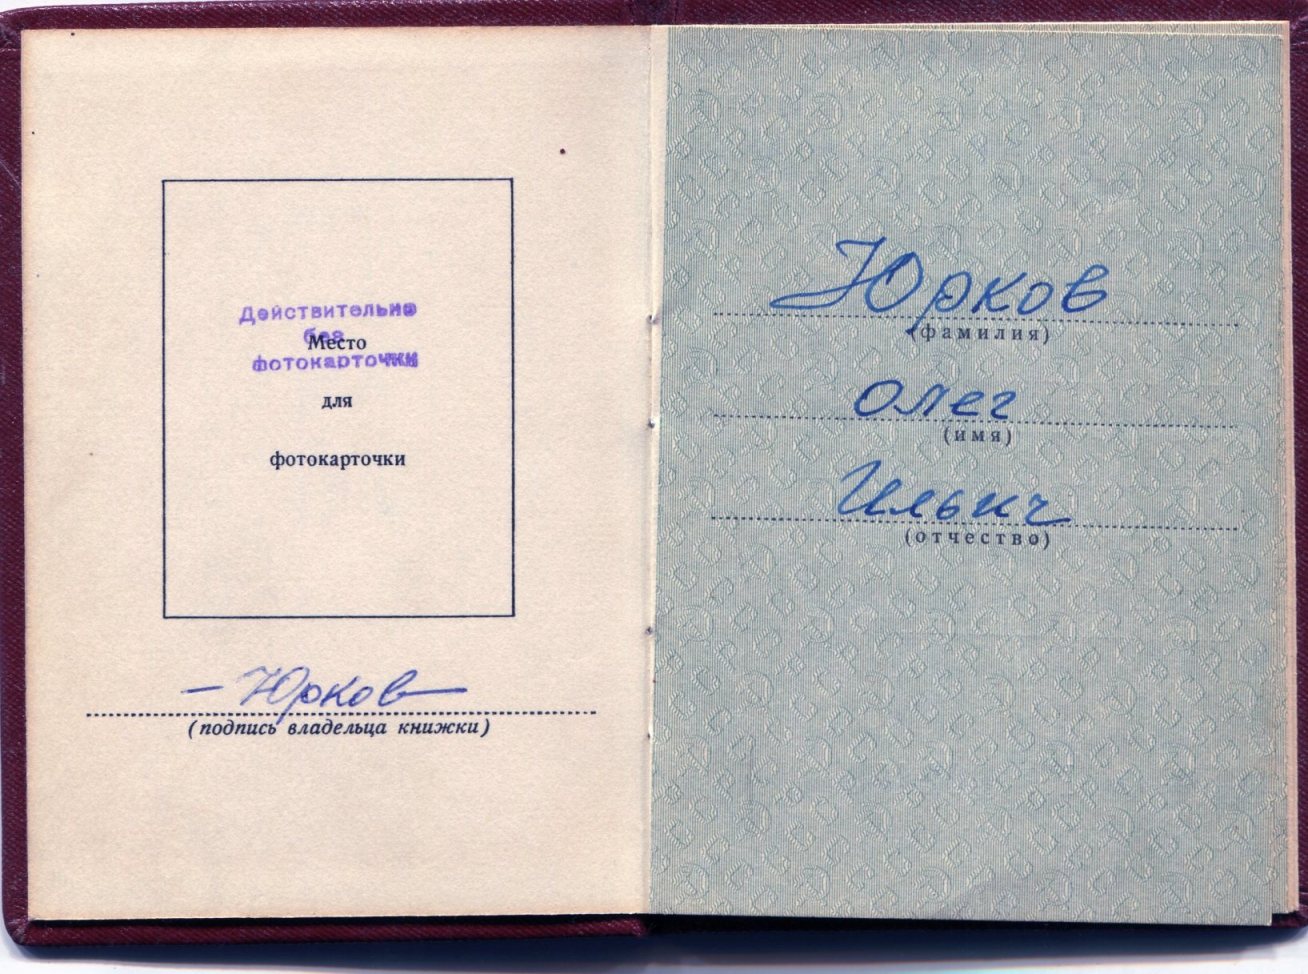 Действительно
без
фотокарточки
Место
для
фотокарточки
- Юрков -
(подпись владельца книжки)
Юрков
(фамилия)
Олег
(имя)
Ильич
(отчество)